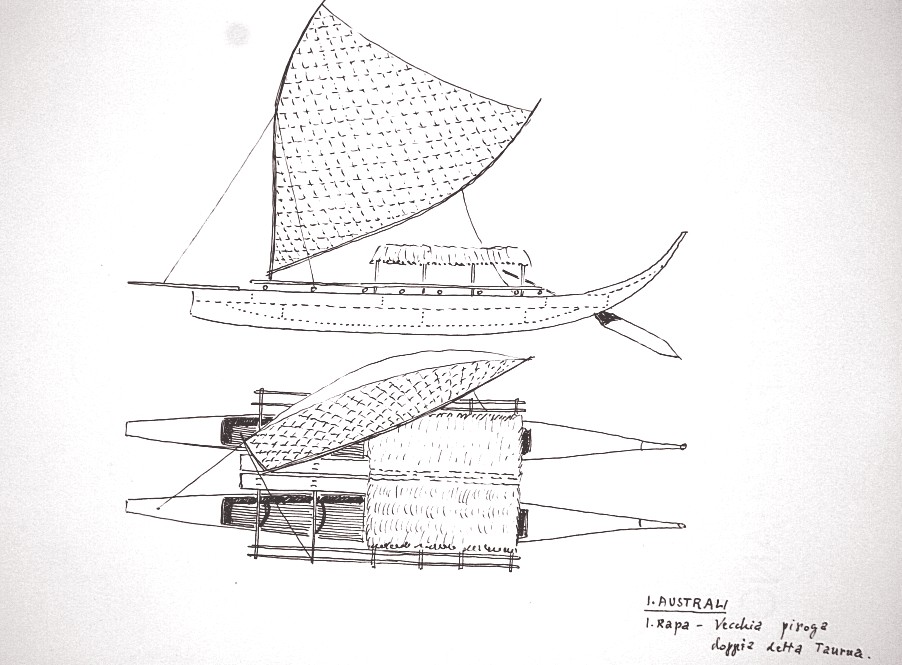 I. AUSTRALI
I. Rapa - Vecchia piroga
doppia detta Taurua.